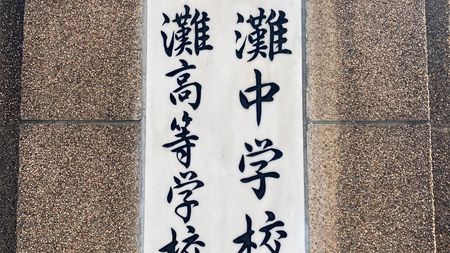 灘中学校
灘高等学校